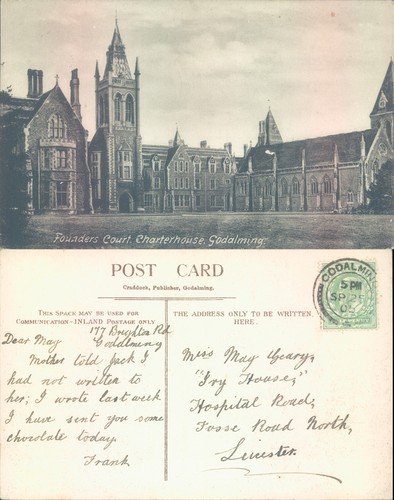 Founders Court, Charterhouse, Godalming.
POST CARD
Craddock, Publisher, Godalming.
THIS SPACE MAY BE USED FOR
COMMUNICATION - INLAND POSTAGE ONLY
177 Brighton Rd
Godalmeny
Dear May
Mother told Jack I
had not written to
her; I wrote last week
I have sent you some
chocolate today.
Frank
THE ADDRESS ONLY TO BE WRITTEN
HERE.
Miss May Geary,
"Ivy House,"
Hospital Road,
Fosse Road North,
Leicester.
GODALMING
5 PM
SP 25